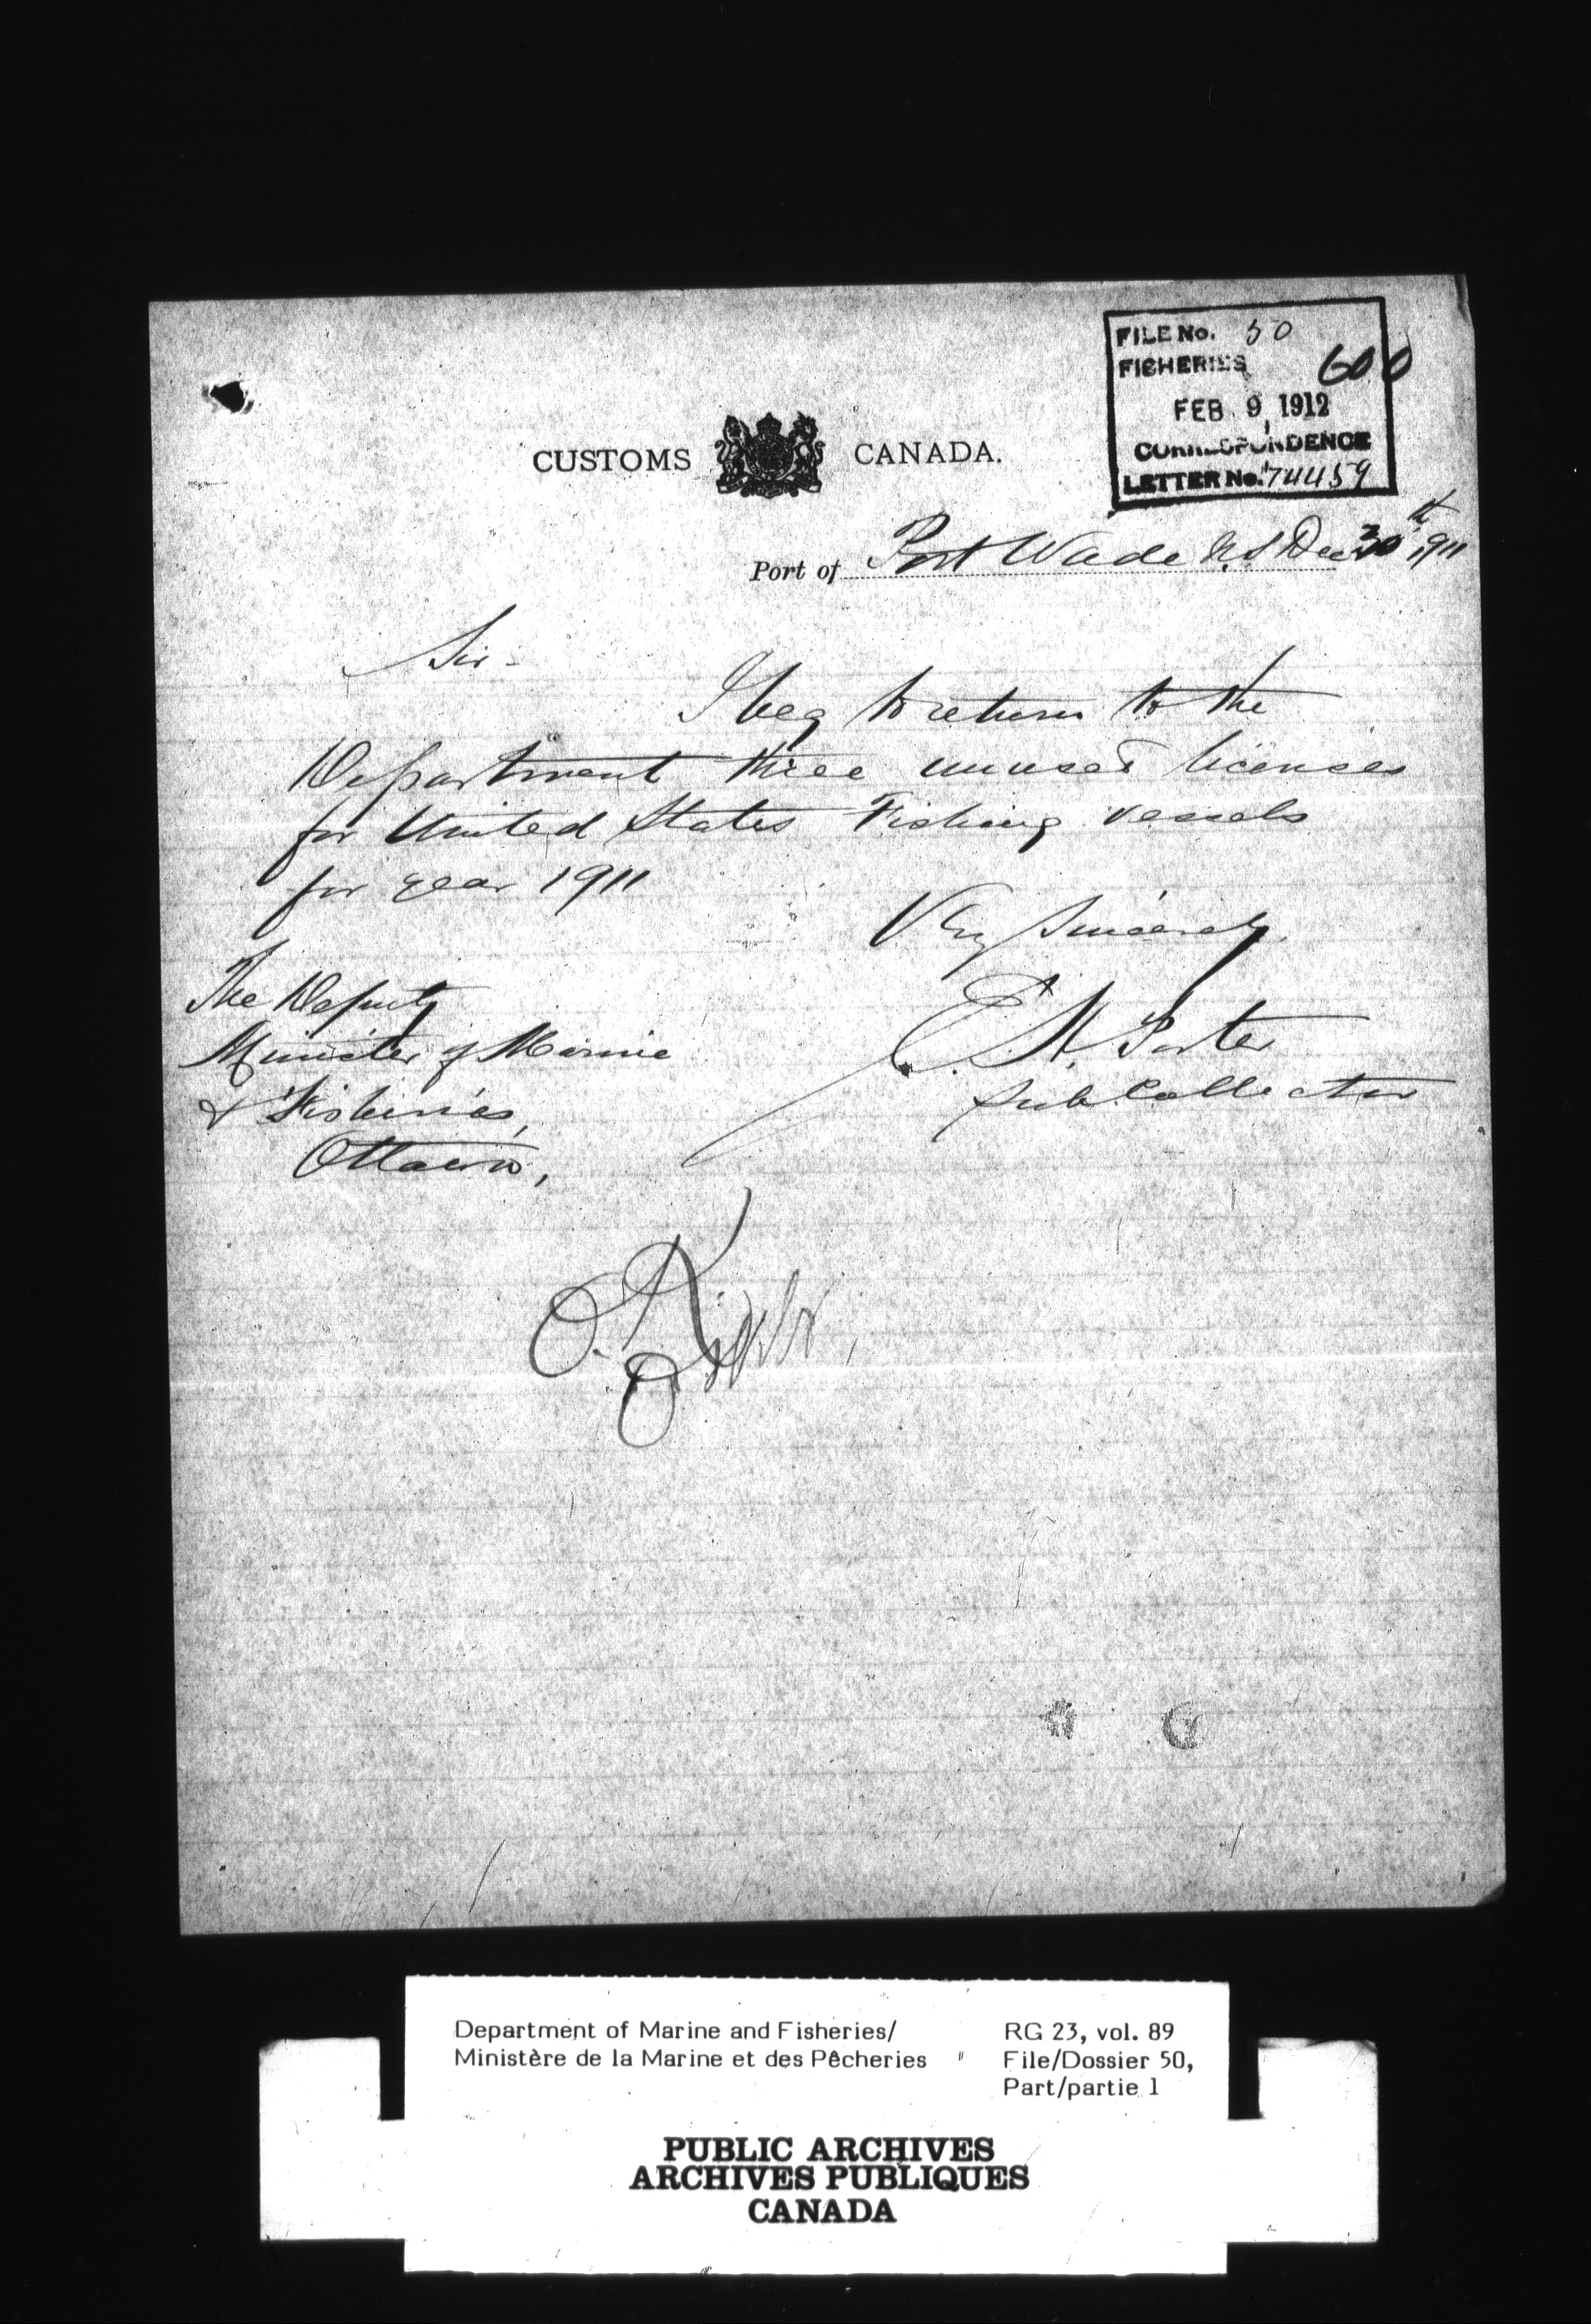 FILE No. 50
FISHERIES 600
FEB 9 1912
CORRESPONDENCE
LETTER No. 74459
CUSTOMS CANADA.
Port of Port Wade N.S. Dec 30th 1911
Sir -
I beg to return to the
Department three unused licenses
for United States Fishing vessels
for year 1911
Very Sincerely
The Deputy
Minister of Marine
& Fisheries,
Ottawa,
E. H. Porter
Sub Collector
O.K.
Department of Marine and Fisheries/
Ministère de la Marine et des Pêcheries
RG 23, vol. 89
File/Dossier 50,
Part/partie 1
PUBLIC ARCHIVES
ARCHIVES PUBLIQUES
CANADA